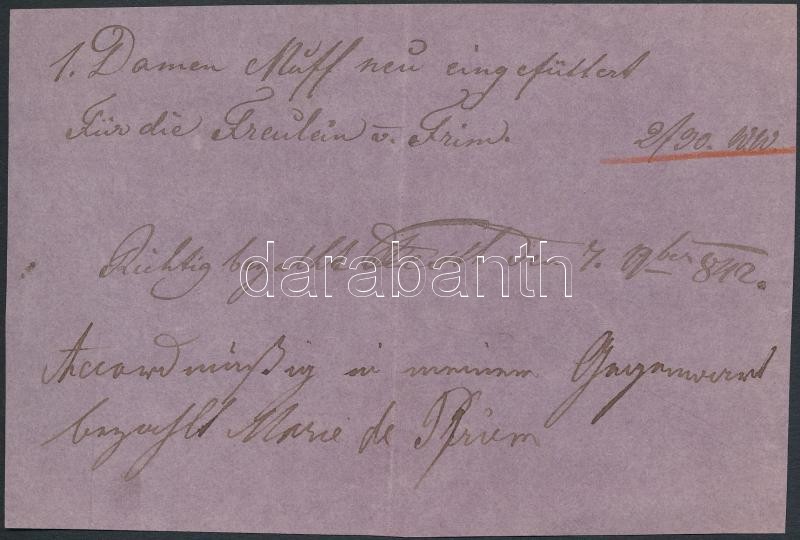 1. Damen Muff neu eingefüttert
Für die Freulein v. Frim. 2/30. W.W.
Richtig bezahlt den 7. 9ber 842.
darabanth
Accordmäßig in meinem Gegenwart
bezahlt Marie de Pfrüm